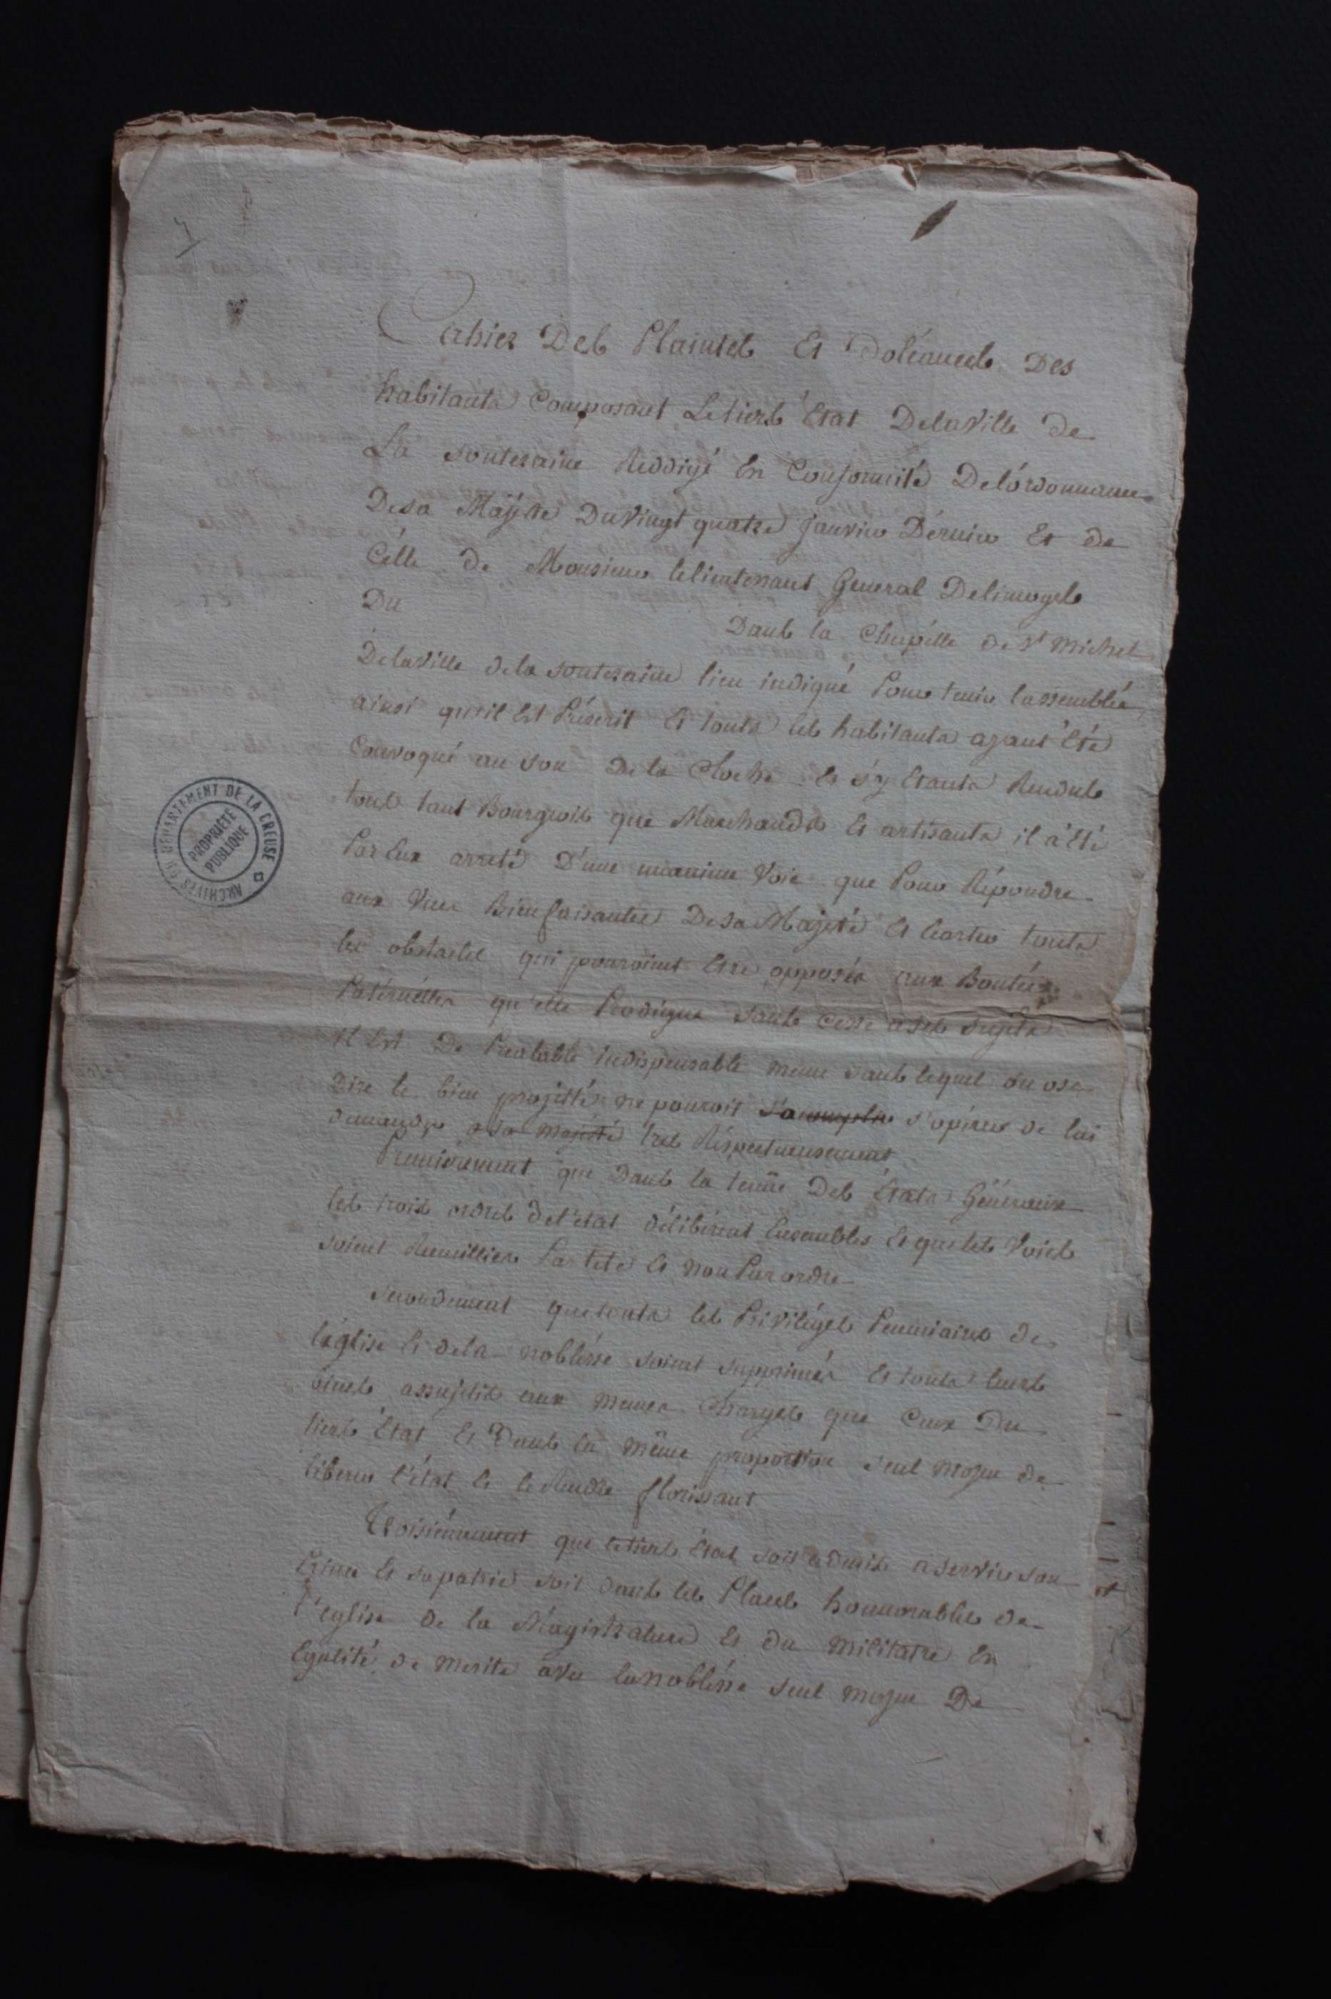 Cahier Des Plaintes Et Doléances Des
habitants Composant Le tiers Etat Delaville de
La souteraine Reddigé En Conformité De lórdonnance
De sa Majesté Du vingt quatre janvier Dérnier Et de
Célle de Monsieur le lieutenant General De limoges
Du
Dans la Chapélle de St Michel
Delaville de la souteraine lieu indiqué Pour tenir lassemblée,
ainsi qu'il Est Préscrit Et touts les habitants ayant Eté
Convoqué au son De la Cloche Et s'y Etants Rendus
tous tant Bourgeois que Marchands Et artisants il a Eté
Par Eux arreté D'une unanime Voix que Pour Répondre
aux Vues Bienfaisantes De sa Majesté Et Ecarter touts
les obstacles qui pouroient Etre opposés aux Bontés
Patérnélles qu'elle Prodigue sans cesse a ses sujets
Il Est De Prealable indispensable même sans lequel on ose
Dire le bien projetté ne pouroit s'accomplir s'opérer de lui
demander a sa majesté tres Réspectueusement
Premierement que Dans la tenue Des Etats Généraux
les trois ordres de l'état délibérent Ensembles Et que les Voies
soient Recuillies Par tete Et non Par ordre
Secondement que touts les Privilèges Pecuniaires de
léglise Et de la noblésse soient supprimés Et touts leurs
biens assujetis aux memes Charges que Ceux Du
tiers Etat Et Dans la même proportion seul moyen de
liberer l'état Et le Rendre florissant
Troisiémement que le tiers Etat soit admis a servir son
Prince Et sa patrie soit dans les Places honnorables de
l'eglise de la Magistrature Et du militaire En
Egalité de merite avec la noblésse seul moyen De
ARCHIVES DU DÉPARTEMENT DE LA CREUSE
PROPRIÉTÉ
PUBLIQUE